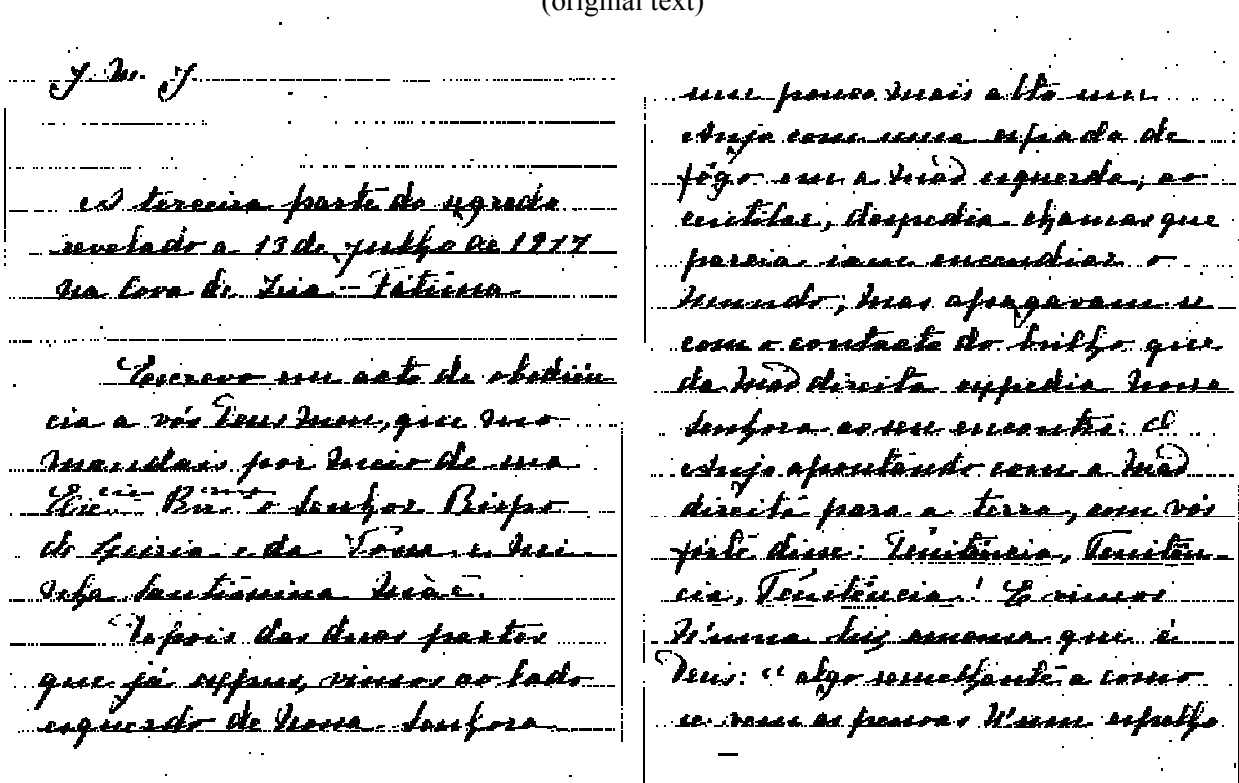 (original text)
J. M. J.
A terceira parte do segredo
revelado a 13 de Julho de 1917
na Cova de Iria – Fátima.
Escrevo em acto de obediên
cia a vós Deus meu, que mo
mandais por meio de sua
Ex.cia Rev.ma o Senhor Bispo
de Leiria e da Vossa e mi-
nha Santíssima Mãe.
Depois das duas partes
que já expus, vimos ao lado
esquerdo de Nossa Senhora
um pouco mais alto um
Anjo com uma espada de
fôgo em a mão esquerda; ao
centilar, despedia chamas que
parcia iam encendiar o
mundo; mas apagavam-se
com o contacto do brilho que
da mão direita expedia Nossa
Senhora ao seu encontro: O
Anjo apontando com a mão
direita para a terra, com vós
forte disse: Penitência, Peniten-
cia, Penitência! E vimos
n'uma luz emensa que é
Deus: "algo semelhante a como
se vem as pessoas n'um espelho